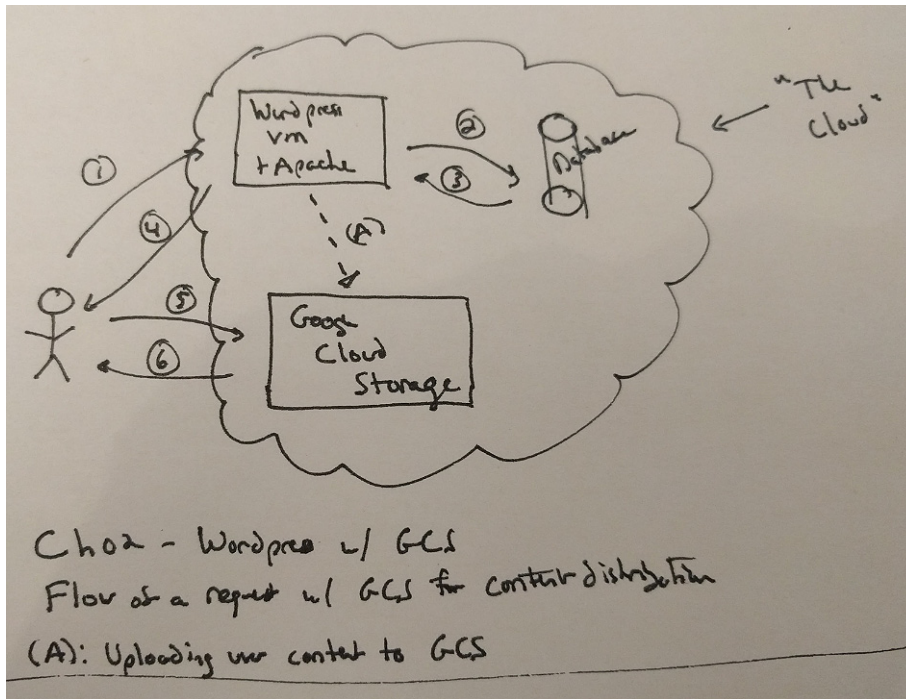 Wordpress
vm
+ Apache
Database
"The
Cloud"
①
②
③
④
(A)
⑤
⑥
Google
Cloud
Storage
Ch02 - Wordpress w/ GCS
Flow of a request w/ GCS for content distribution
(A): Uploading user content to GCS